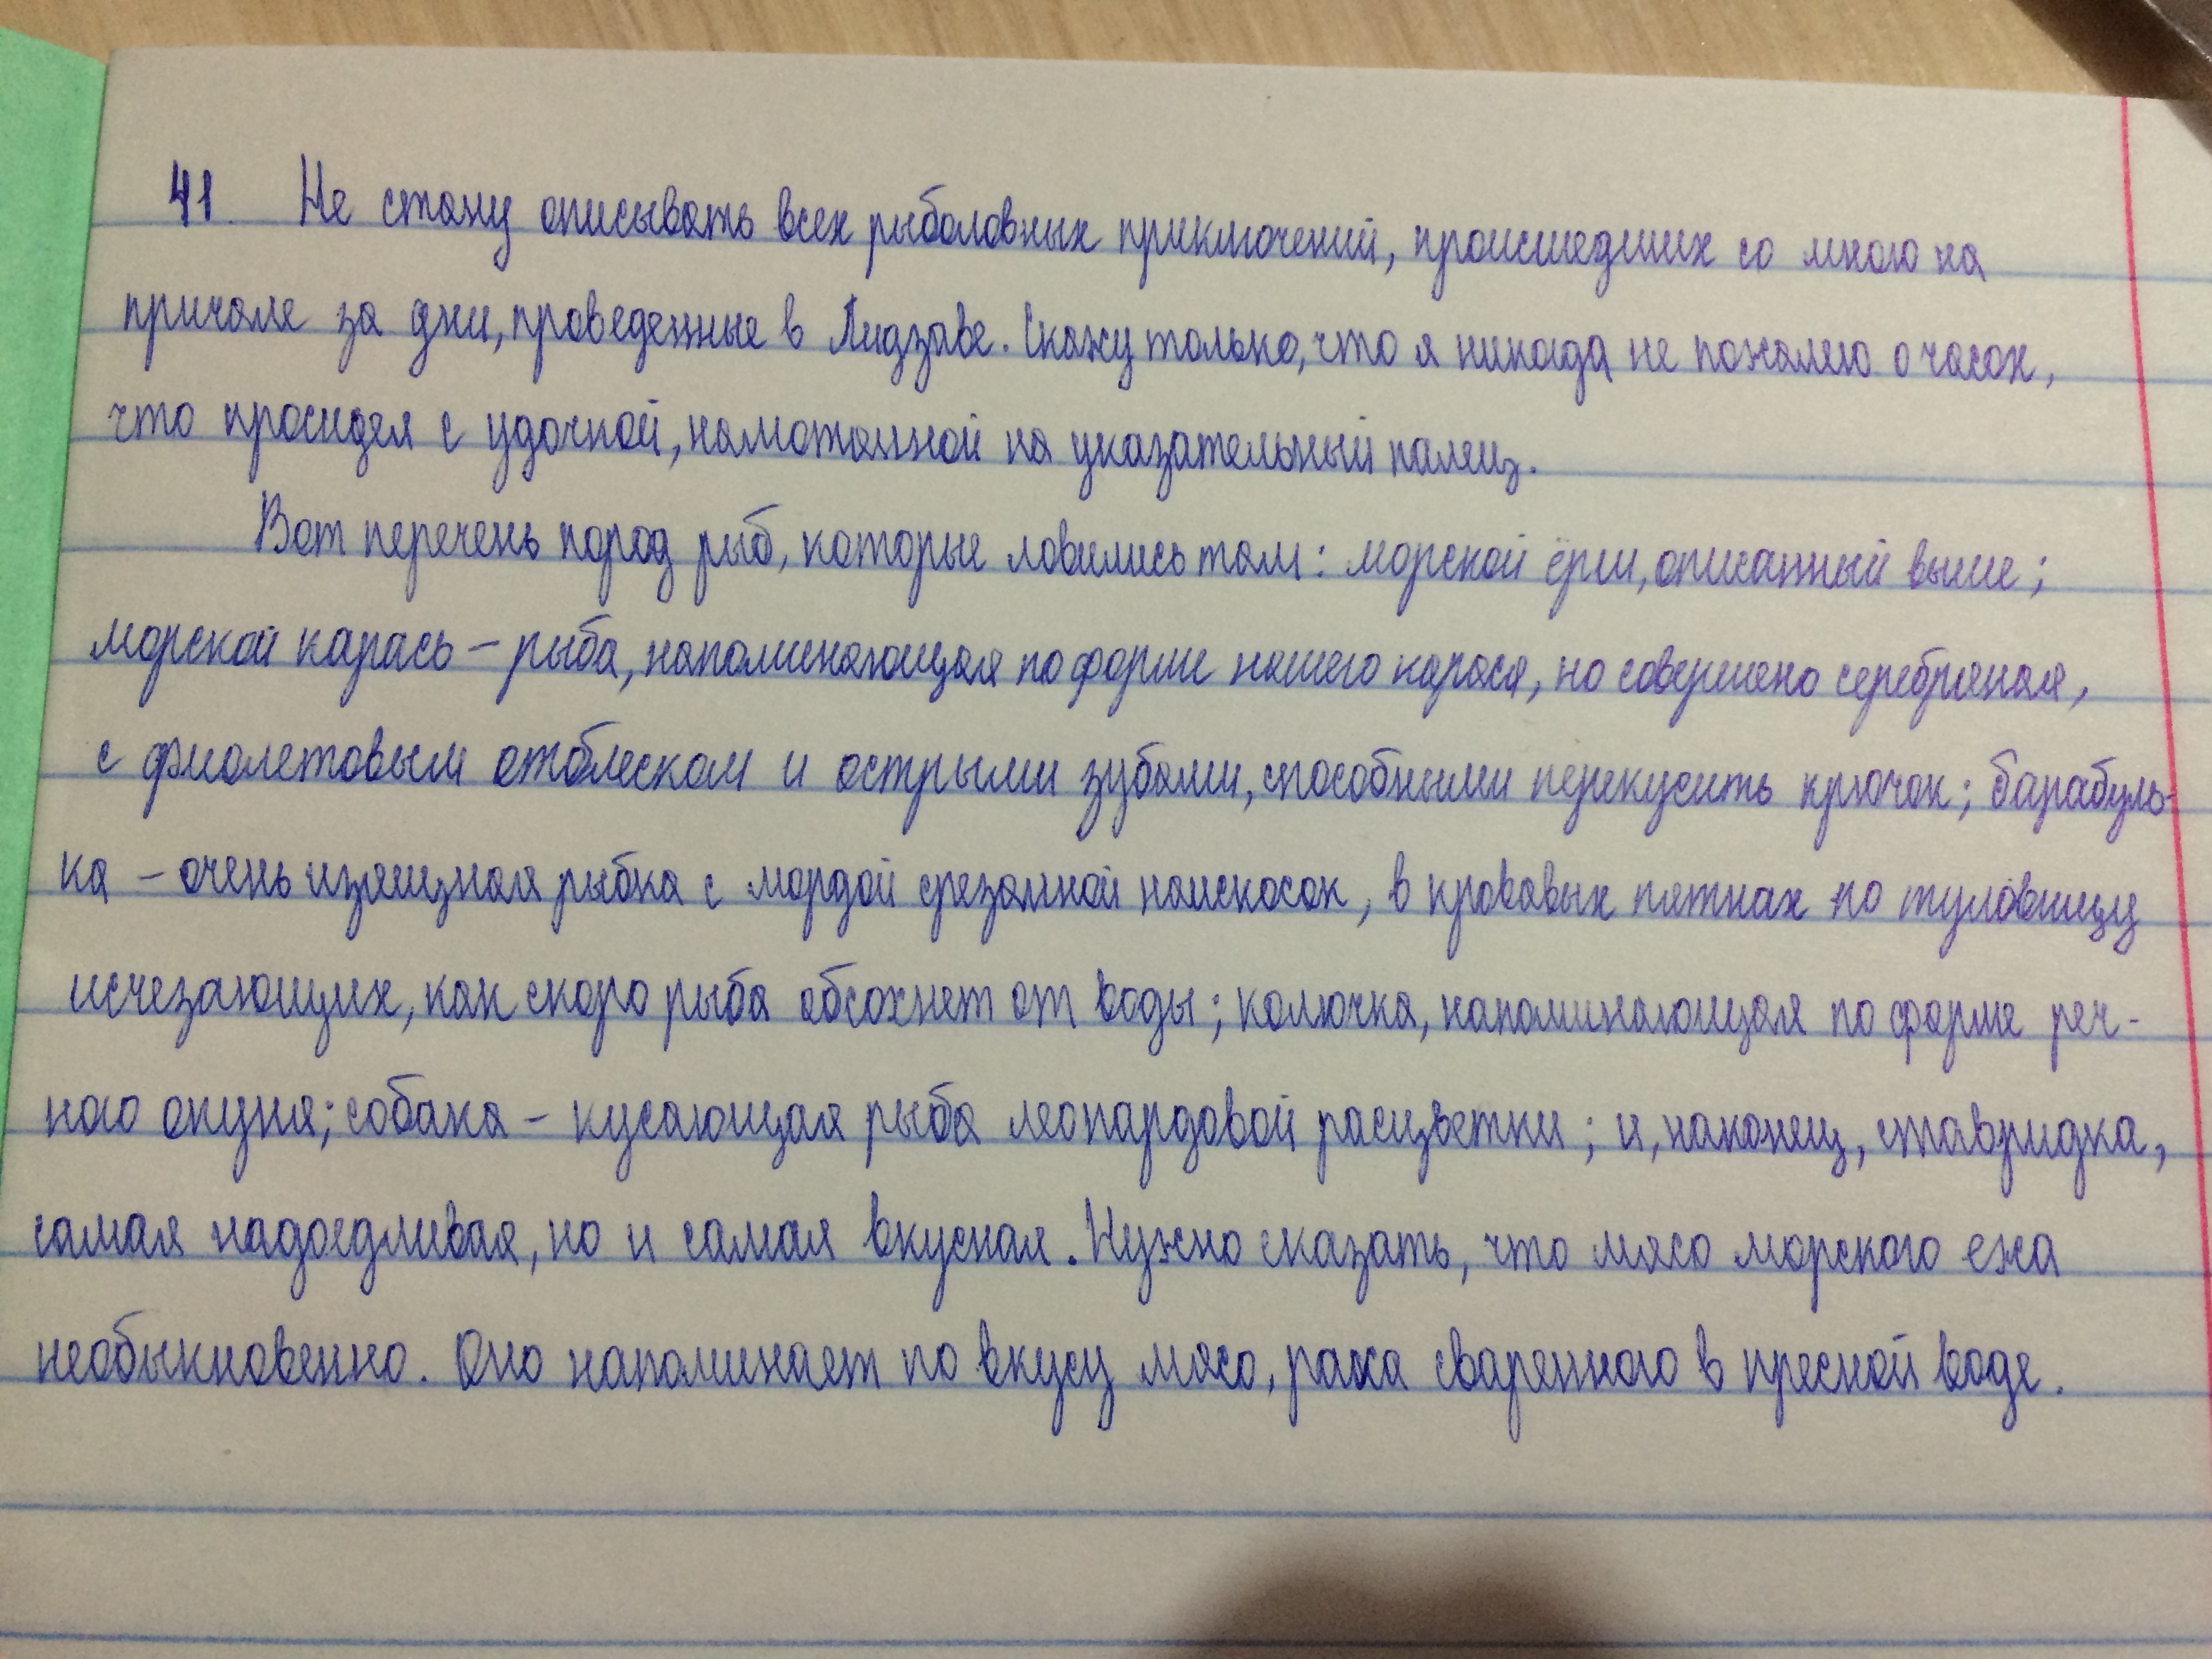 41. Не стану описывать всех рыболовных приключений, происшедших со мною на
причале за дни, проведенные в Лидзаве. Скажу только, что я никогда не пожалею о часах,
что просидел с удочкой, намотанной на указательный палец.
Вот перечень пород рыб, которые ловились там: морской ёрш, описанный выше;
морской карась – рыба, напоминающая по форме нашего карася, но совершено серебряная,
с фиолетовым отблеском и острыми зубами, способными перекусить крючок; барабуль-
ка – очень изящная рыбка с мордой срезанной наискосок, в кровавых пятнах по туловищу
исчезающих, как скоро рыба обсохнет от воды; колючка, напоминающая по форме реч-
ного окуня; собака – кусающая рыба леопардовой расцветки; и, наконец, ставридка,
самая надоедливая, но и самая вкусная. Нужно сказать, что мясо морского ежа
необыкновенно. Оно напоминает по вкусу мясо, рака сваренного в пресной воде.